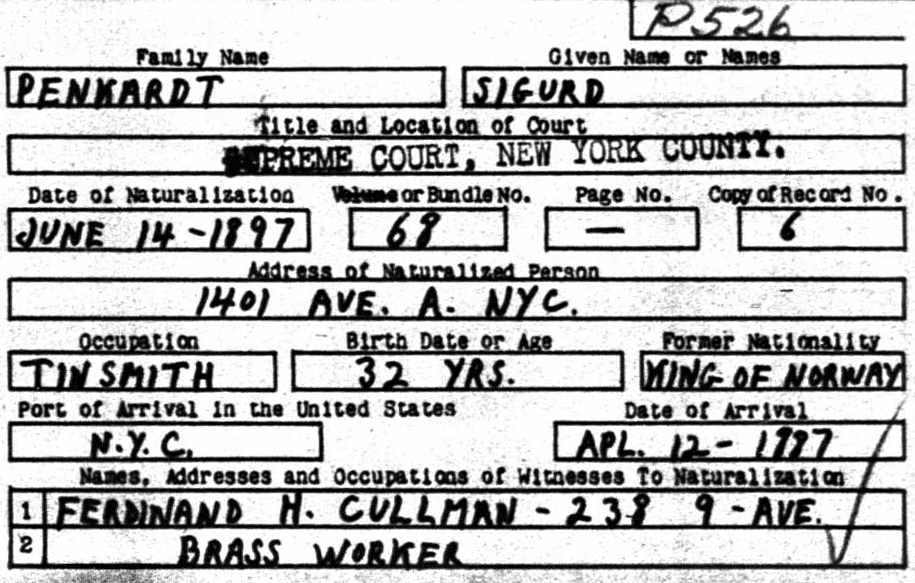 P526
Family Name Given Name or Names
PENKARDT SIGURD
Title and Location of Court
SUPREME COURT, NEW YORK COUNTY.
Date of Naturalization Volume or Bundle No. Page No. Copy of Record No.
JUNE 14-1897 68 — 6
Address of Naturalized Person
1401 AVE. A. NYC.
Occupation Birth Date or Age Former Nationality
TINSMITH 32 YRS. KING OF NORWAY
Port of Arrival in the United States Date of Arrival
N.Y.C. APL. 12-1887
Names, Addresses and Occupations of Witnesses To Naturalization
1 FERDINAND H. CULLMAN - 238 9-AVE.
2 BRASS WORKER